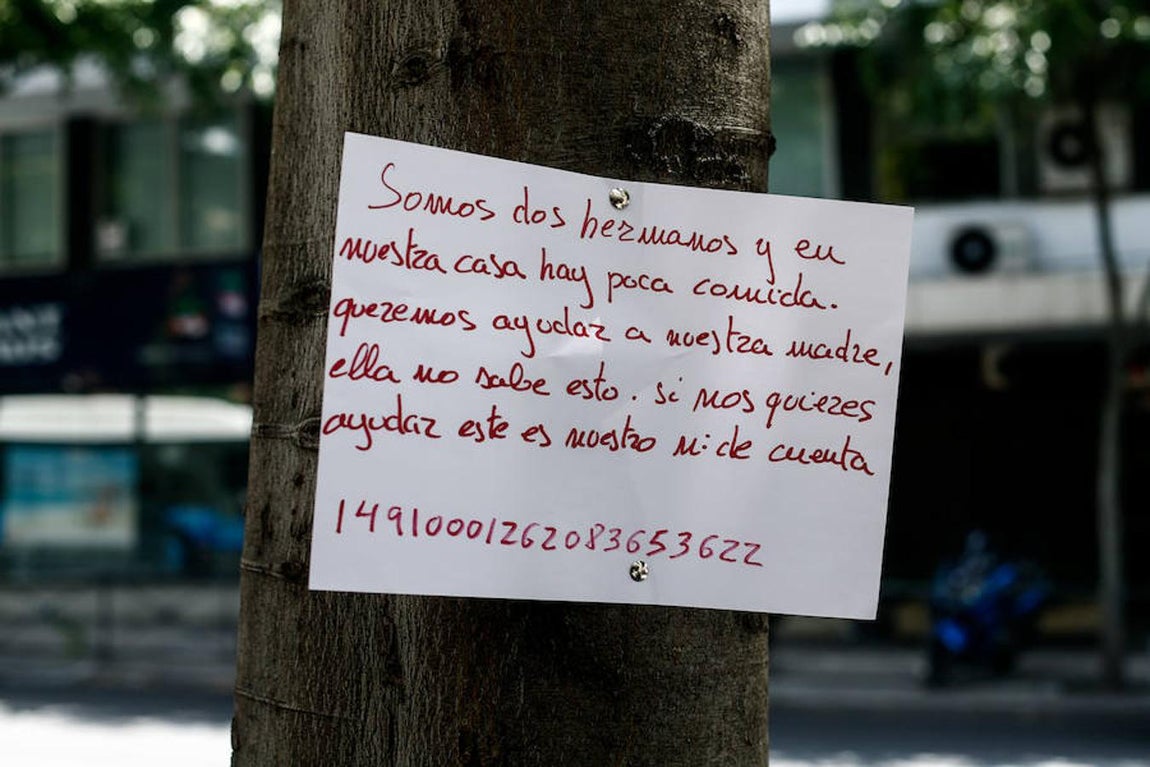 Somos dos hermanos y en
nuestra casa hay poca comida.
queremos ayudar a nuestra madre,
ella no sabe esto. si nos quieres
ayudar este es nuestro n: de cuenta
14910001262083653622